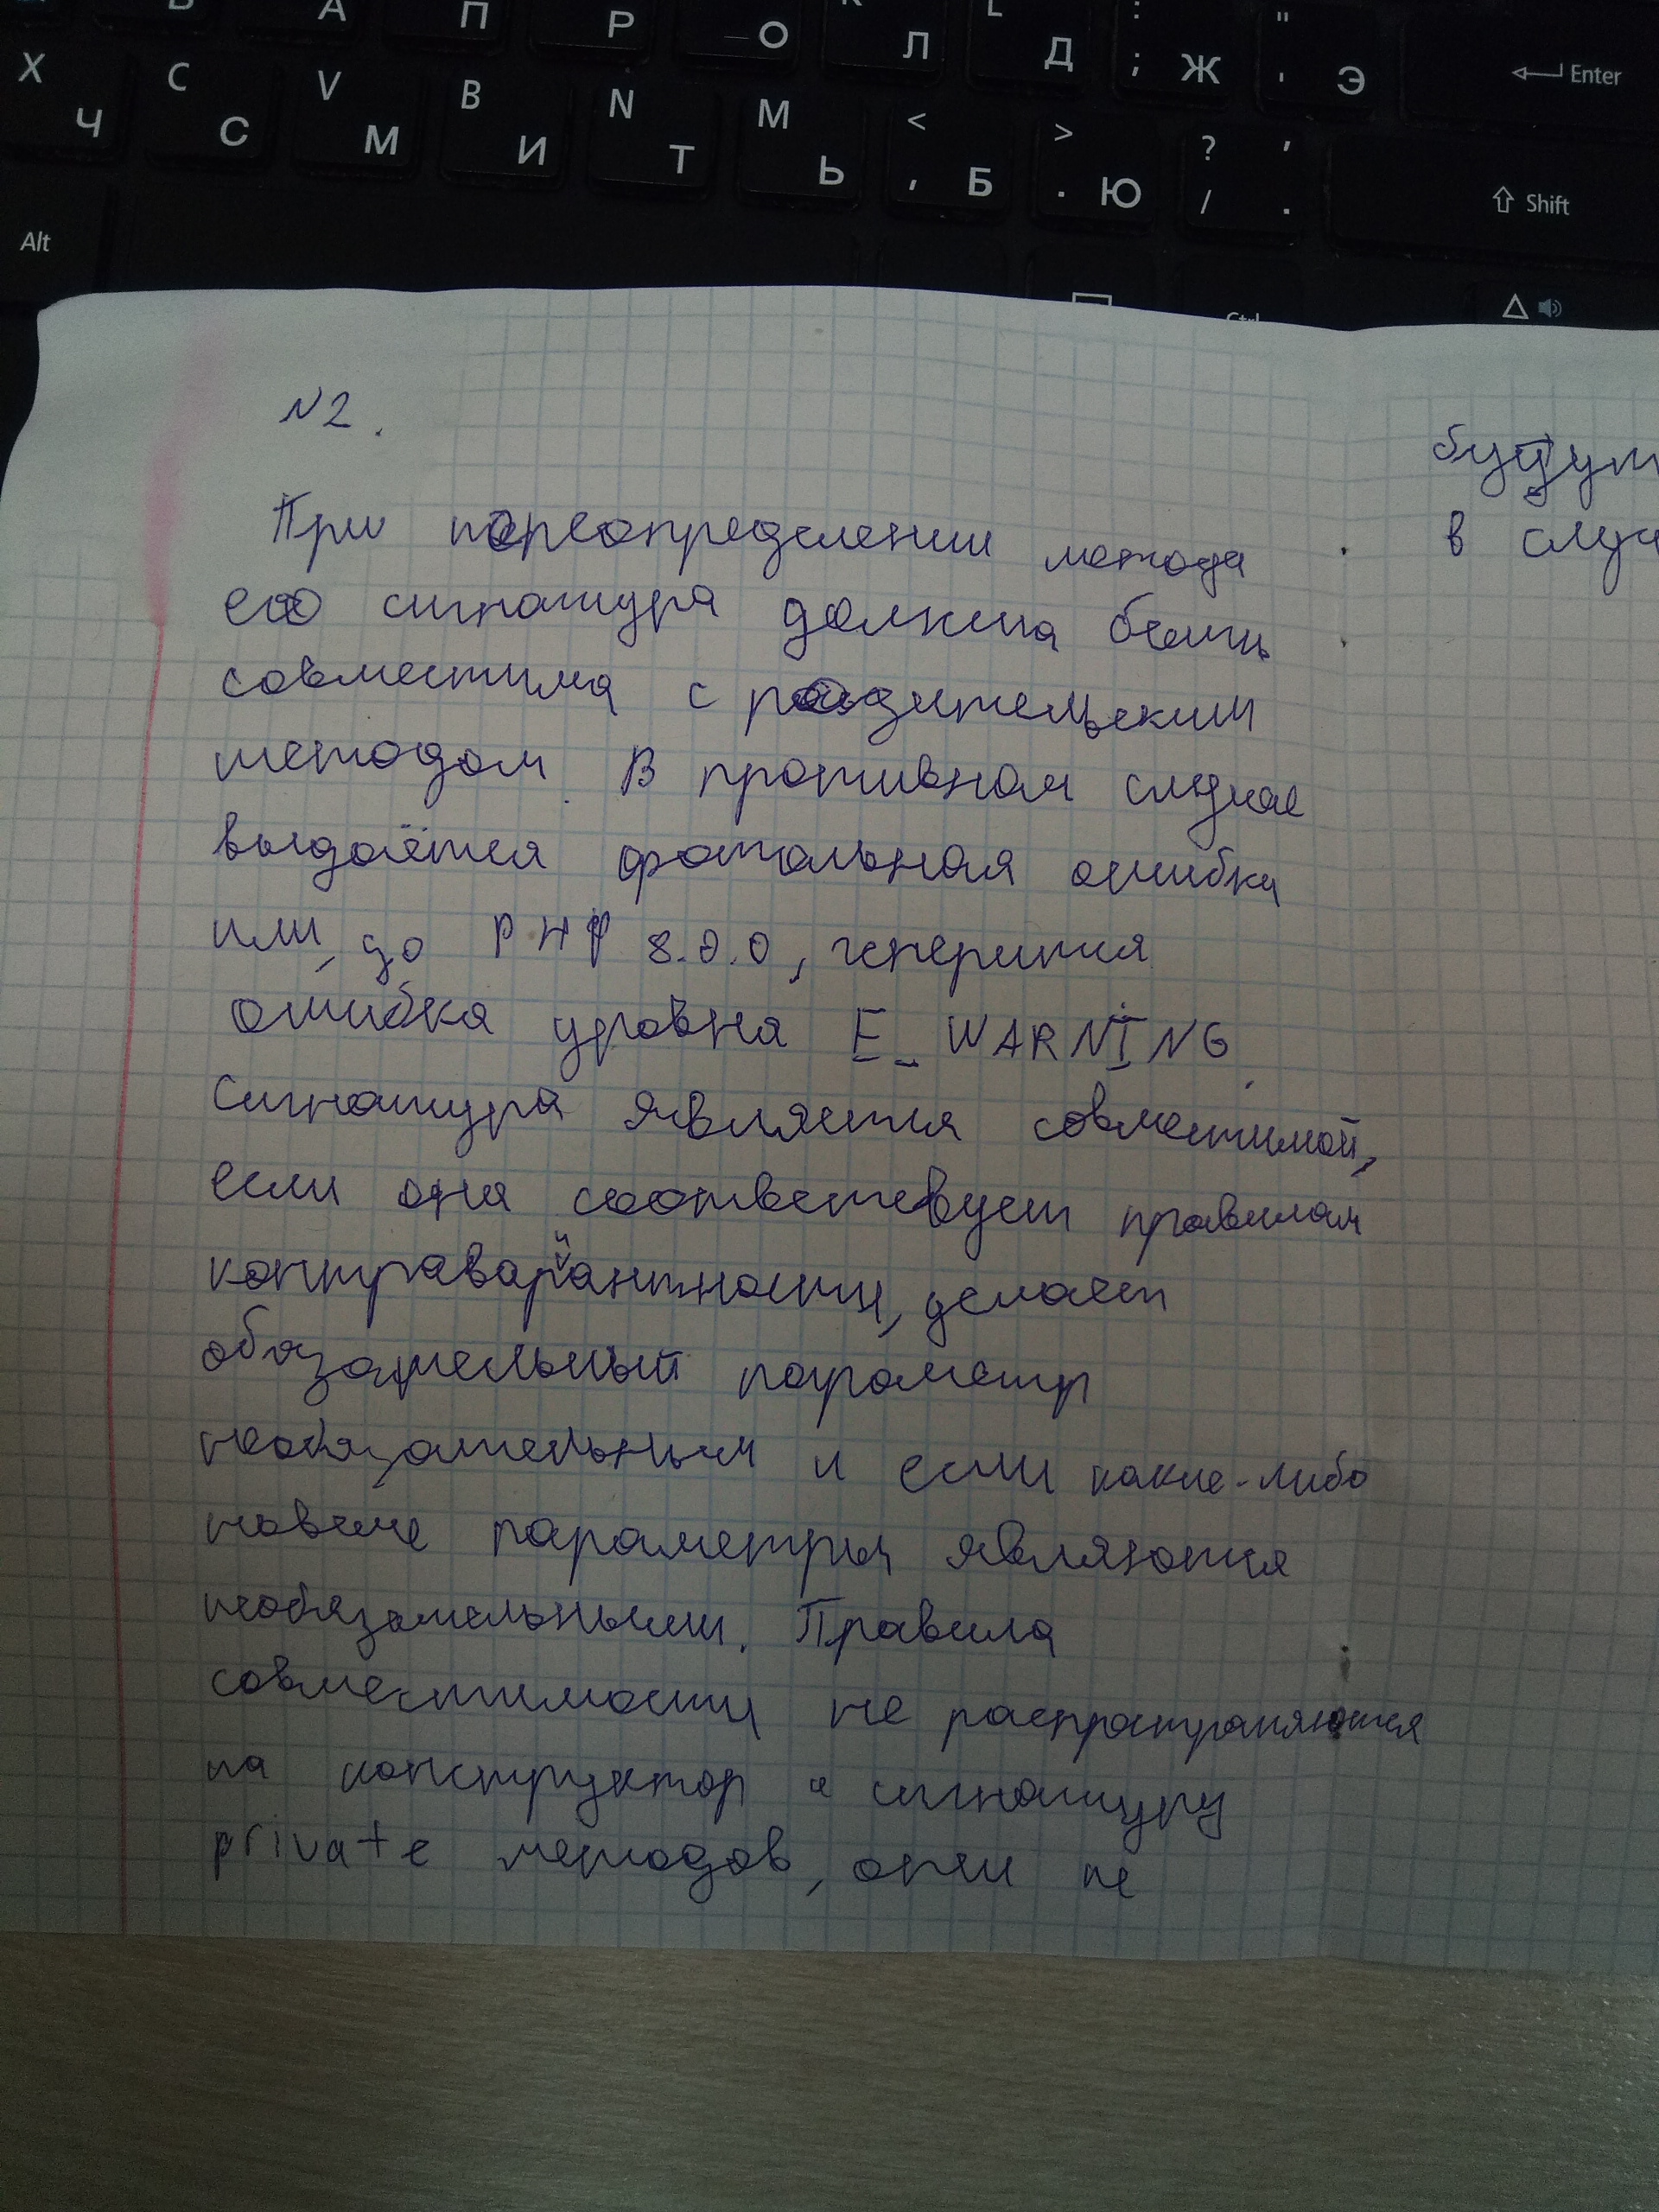 В А П Р О К Л L Д : ; Ж " ' Э Enter
X Ч C С V М B И N Т M Ь < , Б > . Ю ? / , . Shift
Alt Ctrl
N2.
При переопределении метода
его сигнатура должна быть
совместима с родительским
методом. В противном случае
выдаётся фатальная ошибка
или, до PHP 8.0.0, генерится
ошибка уровня E_WARNING.
Сигнатура является совместимой,
если она соответствует правилам
контравариантности, делает
обязательный параметр
необязательным и если какие-либо
новые параметры являются
необязательными. Правила
совместимости не распространяются
на конструктор и сигнатуру
private методов, они не
будут
в случ